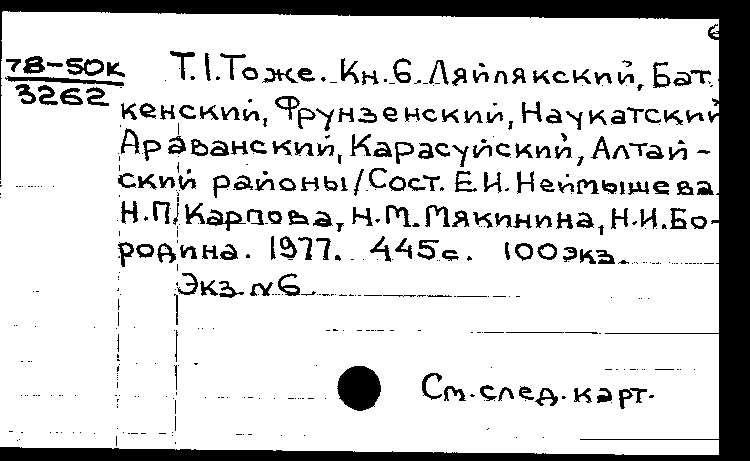 6
78-50К Т.1. Тоже. Кн.6. Ляйлякский, Бат-
3262
кенский, Фрунзенский, Наукатский
Араванский, Карасуйский, Алтай-
ский районы/Сост. Е.И. Неймышева
Н.П. Карпова, Н.М. Мякинина, Н.И. Бо-
родина. 1977. 445с. 100экз.
Экз. №6.
См. след. карт.